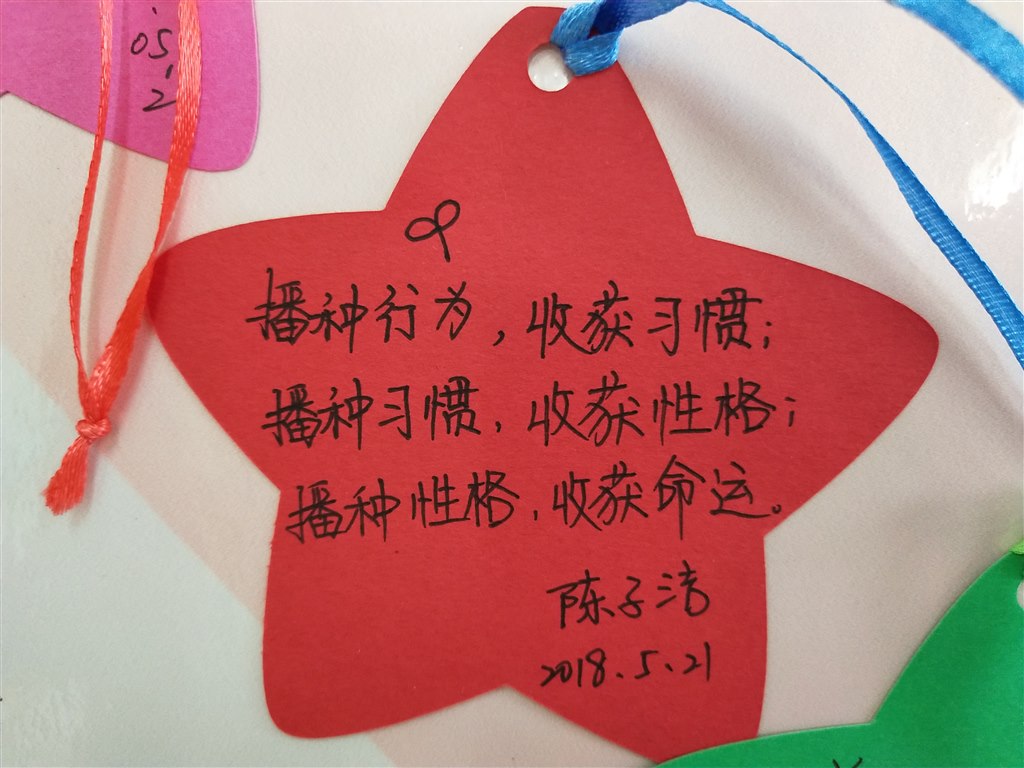 05
2
播种行为,收获习惯;
播种习惯,收获性格;
播种性格,收获命运。
陈子洁
2018.5.21